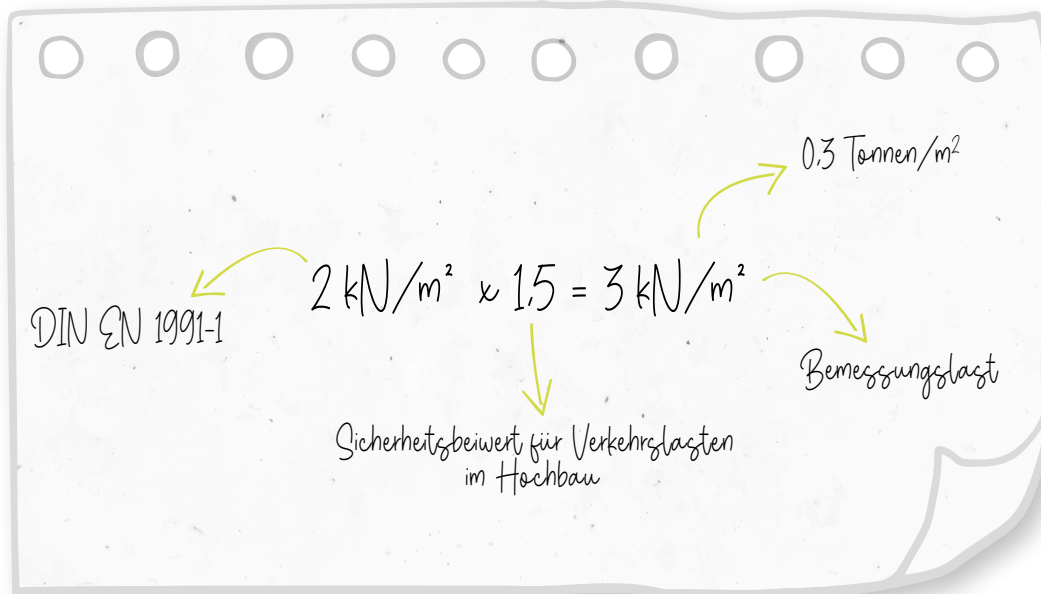 0,3 Tonnen/m²
2 kN/m² x 1,5 = 3 kN/m²
DIN EN 1991-1
Bemessungslast
Sicherheitsbeiwert für Verkehrslasten
im Hochbau